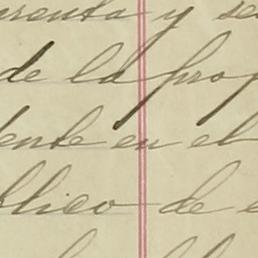 renta y se
de la prop
dente en el
blico de e